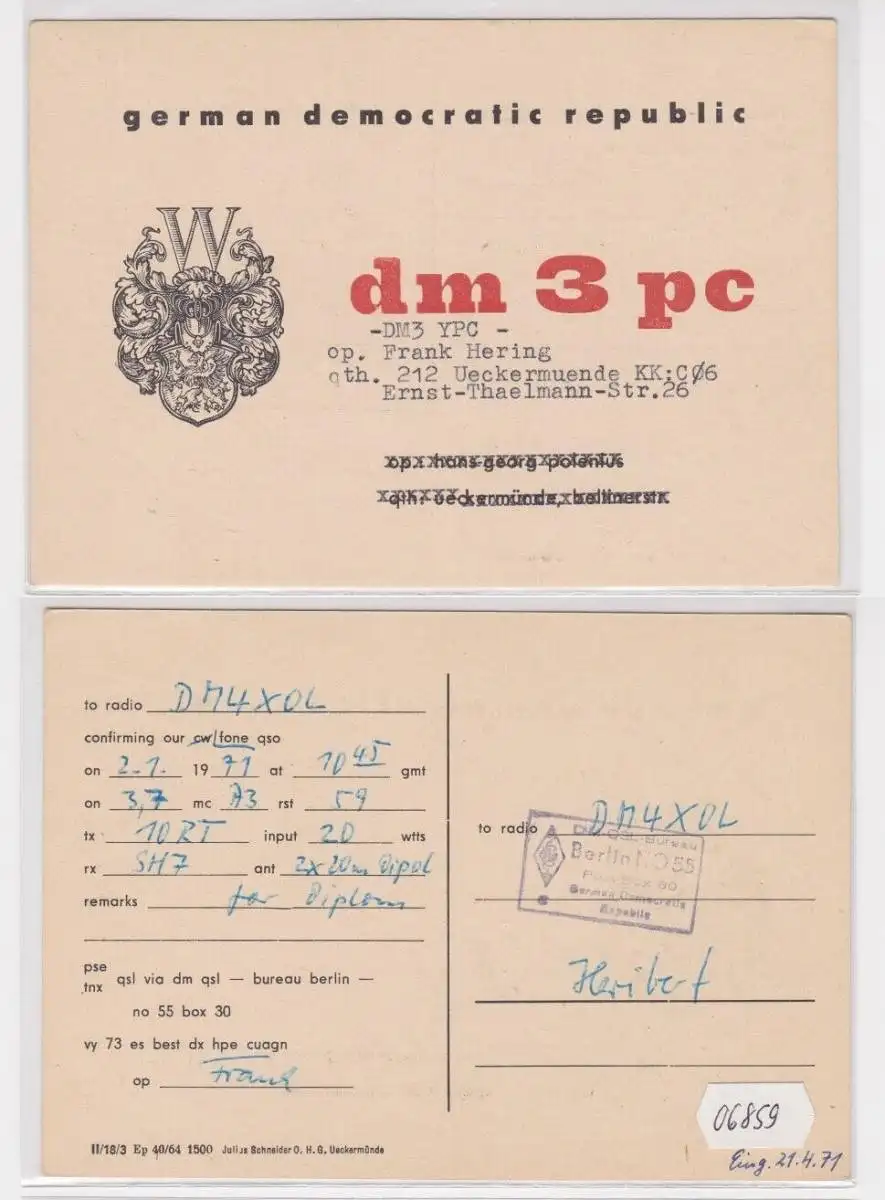 german democratic republic
W
dm 3 pc
-DM3 YPC -
op. Frank Hering
qth. 212 Ueckermuende KK:CØ6
Ernst-Thaelmann-Str.26
op: hans-georg polenius
qth: ueckermünde, bellinerstr.
to radio DM4XOL
confirming our cw/fone qso
on 2.1. 1971 at 10 45 gmt
on 3,7 mc A3 rst 59
tx 10RT input 20 wtts
rx SH7 ant 2x20m Dipol
remarks for Diplom
pse
tnx qsl via dm qsl — bureau berlin —
no 55 box 30
vy 73 es best dx hpe cuagn
op Frank
II/18/3 Ep 40/64 1500 Julius Schneider O. H. G. Ueckermünde
to radio DM4XOL
DM-QSL-Bureau
Berlin NO 55
German Democratic
Republic
Heribert
06859
Eing. 21.4.71